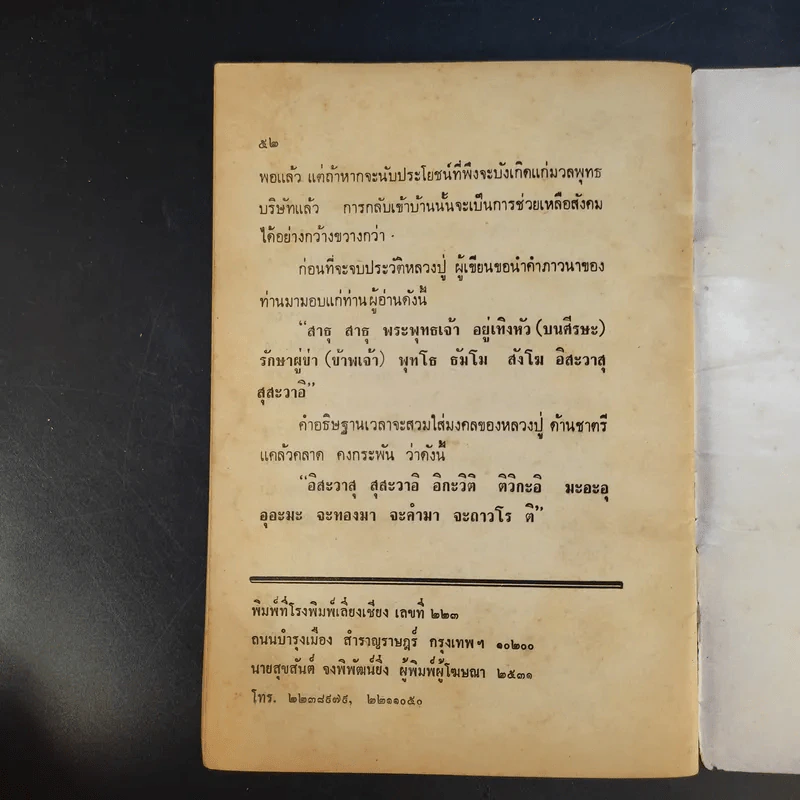 ๕๒
พอแล้ว แต่ถ้าหากจะนับประโยชน์ที่พึงจะบังเกิดแก่มวลพุทธ
บริษัทแล้ว การกลับเข้าบ้านนั้นจะเป็นการช่วยเหลือสังคม
ได้อย่างกว้างขวางกว่า
ก่อนที่จะจบประวัติหลวงปู่ ผู้เขียนขอนำคำภาวนาของ
ท่านมามอบแก่ท่านผู้อ่านดังนี้
“สาธุ สาธุ พระพุทธเจ้า อยู่เทิงหัว (บนศีรษะ)
รักษาผู่ข่า (ข้าพเจ้า) พุทโธ ธัมโม สังโฆ อิสะวาสุ
สุสะวาอิ”
คำอธิษฐานเวลาจะสวมใส่มงคลของหลวงปู่ ด้านชาตรี
แคล้วคลาด คงกระพัน ว่าดังนี้
“อิสะวาสุ สุสะวาอิ อิกะวิติ ติวิกะอิ มะอะอุ
อุอะมะ จะทองมา จะคำมา จะถาวโร ติ”
พิมพ์ที่โรงพิมพ์เลี่ยงเชียง เลขที่ ๒๒๓
ถนนบำรุงเมือง สำราญราษฎร์ กรุงเทพฯ ๑๐๒๐๐
นายสุขสันต์ จงพิพัฒน์ยิ่ง ผู้พิมพ์ผู้โฆษณา ๒๕๓๑
โทร. ๒๒๓๘๙๗๙, ๒๒๑๑๐๕๐